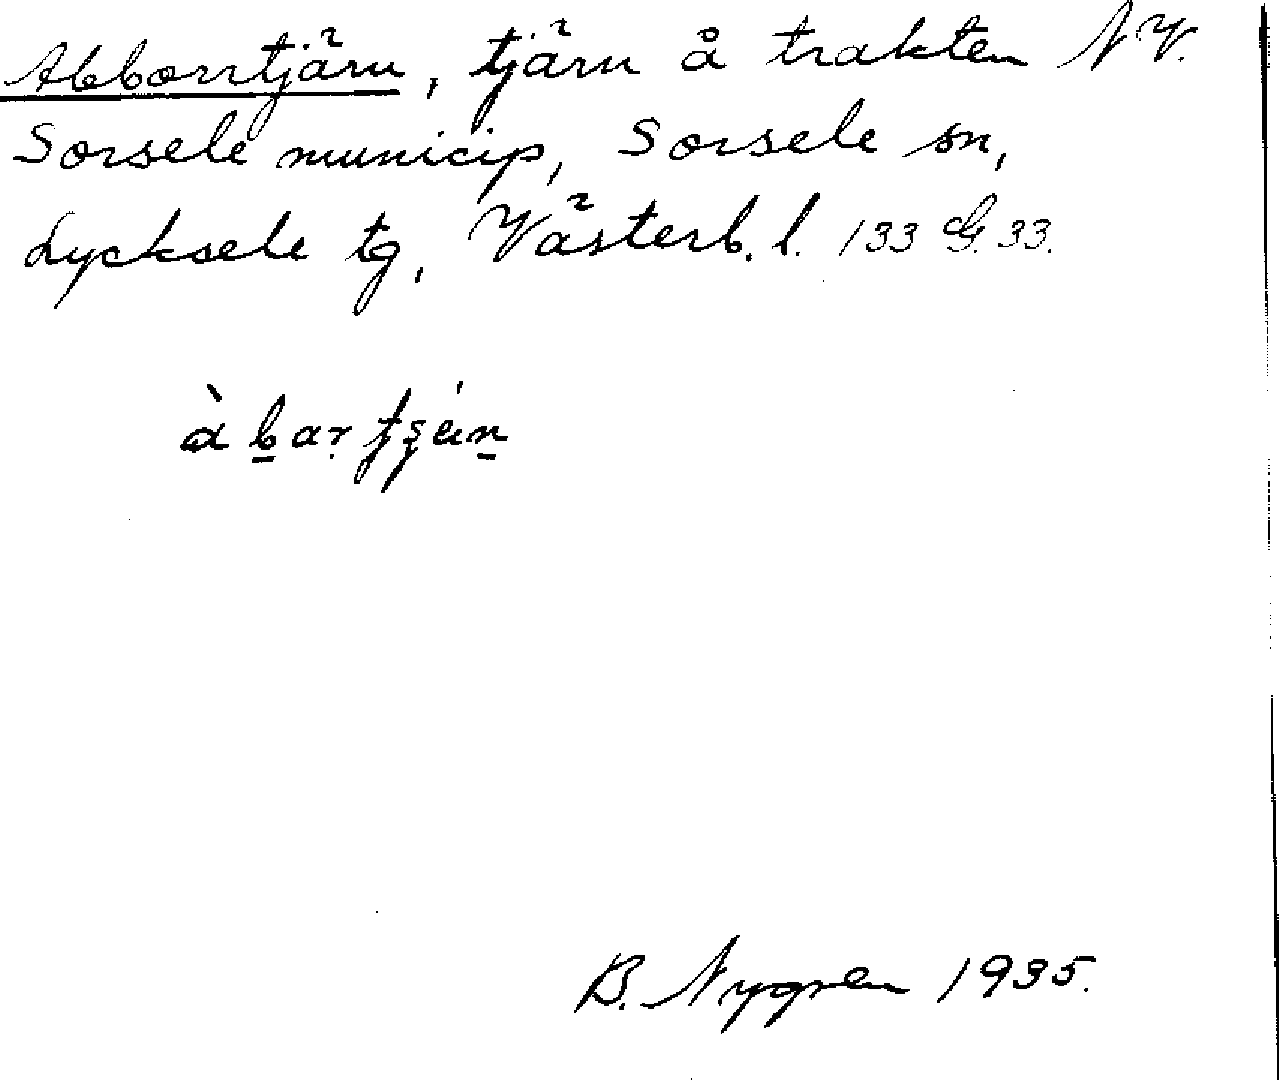 Abborrtjärn, tjärn å trakten NV.
Sorsele municip, Sorsele sn,
Lycksele tg, Västerb. l. 133 G. 33.
B. Nygren 1935.